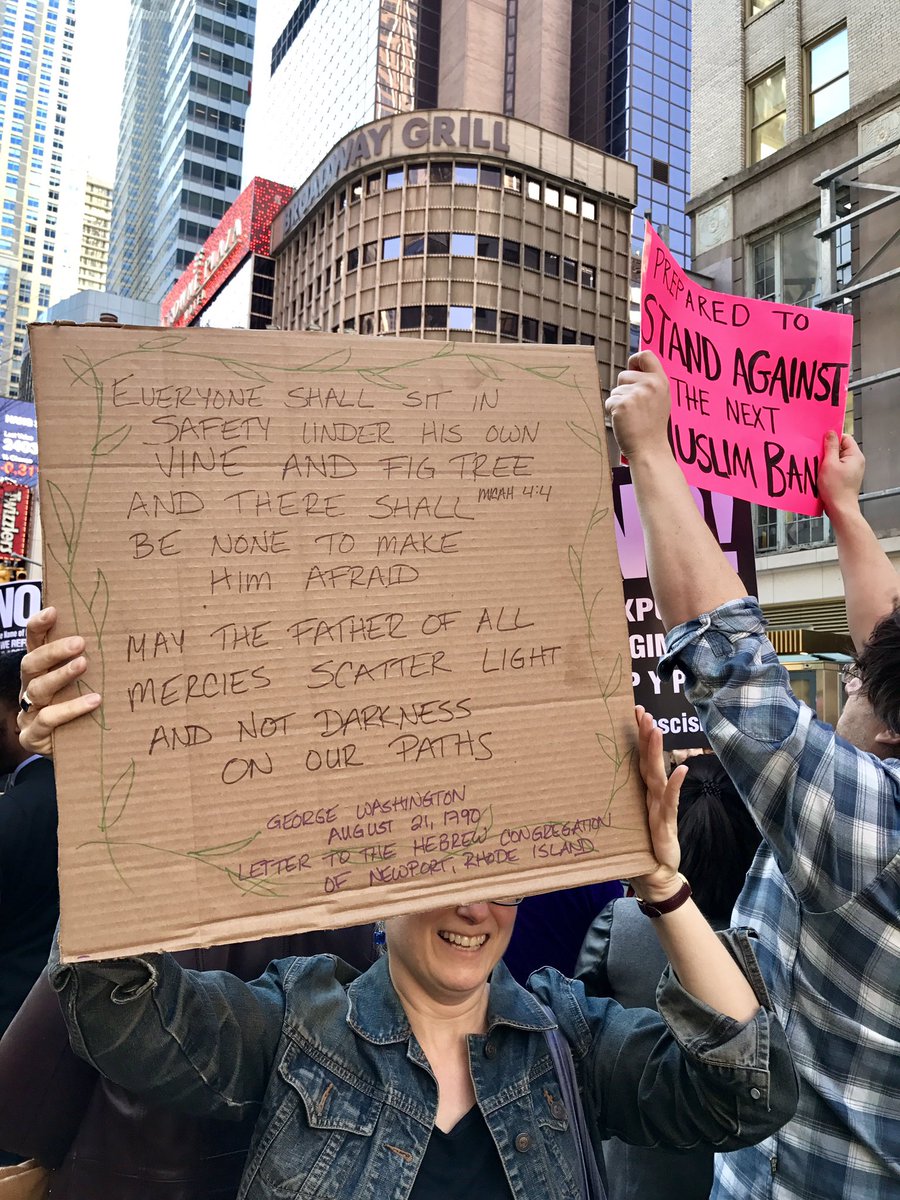 BROADWAY GRILL
PREPARED TO
STAND AGAINST
THE NEXT
MUSLIM BAN
EVERYONE SHALL SIT IN
SAFETY UNDER HIS OWN
VINE AND FIG TREE
AND THERE SHALL MICAH 4:4
BE NONE TO MAKE
HIM AFRAID
MAY THE FATHER OF ALL
MERCIES SCATTER LIGHT
AND NOT DARKNESS
ON OUR PATHS
GEORGE WASHINGTON
AUGUST 21, 1790
LETTER TO THE HEBREW CONGREGATION
OF NEWPORT, RHODE ISLAND
Twizzlers
0.31
NO